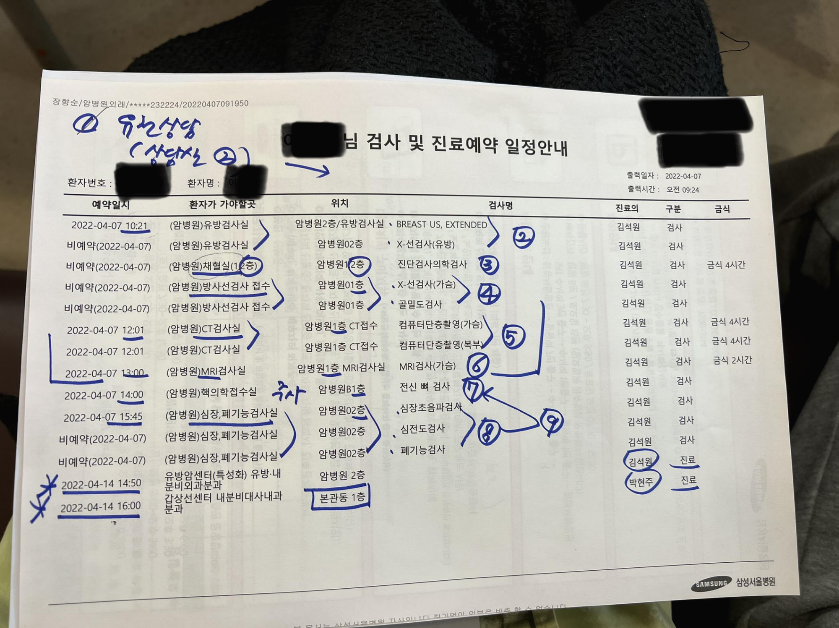 장황순/암병원외래/*****232224/20220407091950
① 유전상담
(상담실 ②) →
님 검사 및 진료예약 일정안내
출력일자 : 2022-04-07
환자번호 : 환자명 :
출력시간 : 오전 09:24
예약일지 환자가 가야할곳 위치 검사명 진료의 구분 금식
2022-04-07 10:21 (암병원)유방검사실 암병원2층/유방검사실 BREAST US, EXTENDED 김석원 검사
비예약(2022-04-07) (암병원)유방검사실 암병원02층 X-선검사(유방) ② 김석원 검사
비예약(2022-04-07) (암병원)채혈실(12층) 암병원12층 진단검사의학검사 ③ 김석원 검사 금식 4시간
비예약(2022-04-07) (암병원)방사선검사 접수 암병원01층 X-선검사(가슴) ④ 김석원 검사
비예약(2022-04-07) (암병원)방사선검사 접수 암병원01층 골밀도검사 김석원 검사
2022-04-07 12:01 (암병원)CT검사실 암병원1층 CT접수 컴퓨터단층촬영(가슴) ⑤ 김석원 검사 금식 4시간
2022-04-07 12:01 (암병원)CT검사실 암병원1층 CT접수 컴퓨터단층촬영(복부) 김석원 검사 금식 4시간
2022-04-07 13:00 (암병원)MRI검사실 암병원1층 MRI검사실 MRI검사(가슴) ⑥ 김석원 검사 금식 2시간
2022-04-07 14:00 (암병원)핵의학접수실 주사 암병원B1층 전신 뼈 검사 ⑦ 김석원 검사
2022-04-07 15:45 (암병원)심장,폐기능검사실 암병원02층 심장초음파검사 ⑨ 김석원 검사
비예약(2022-04-07) (암병원)심장,폐기능검사실 암병원02층 심전도검사 ⑧ 김석원 검사
비예약(2022-04-07) (암병원)심장,폐기능검사실 암병원02층 폐기능검사 김석원 검사
2022-04-14 14:50 유방암센터(특성화) 유방·내분비외과분과 암병원 2층 김석원 진료
2022-04-14 16:00 갑상선센터 내분비대사내과분과 본관동 1층 박현주 진료
SAMSUNG 삼성서울병원